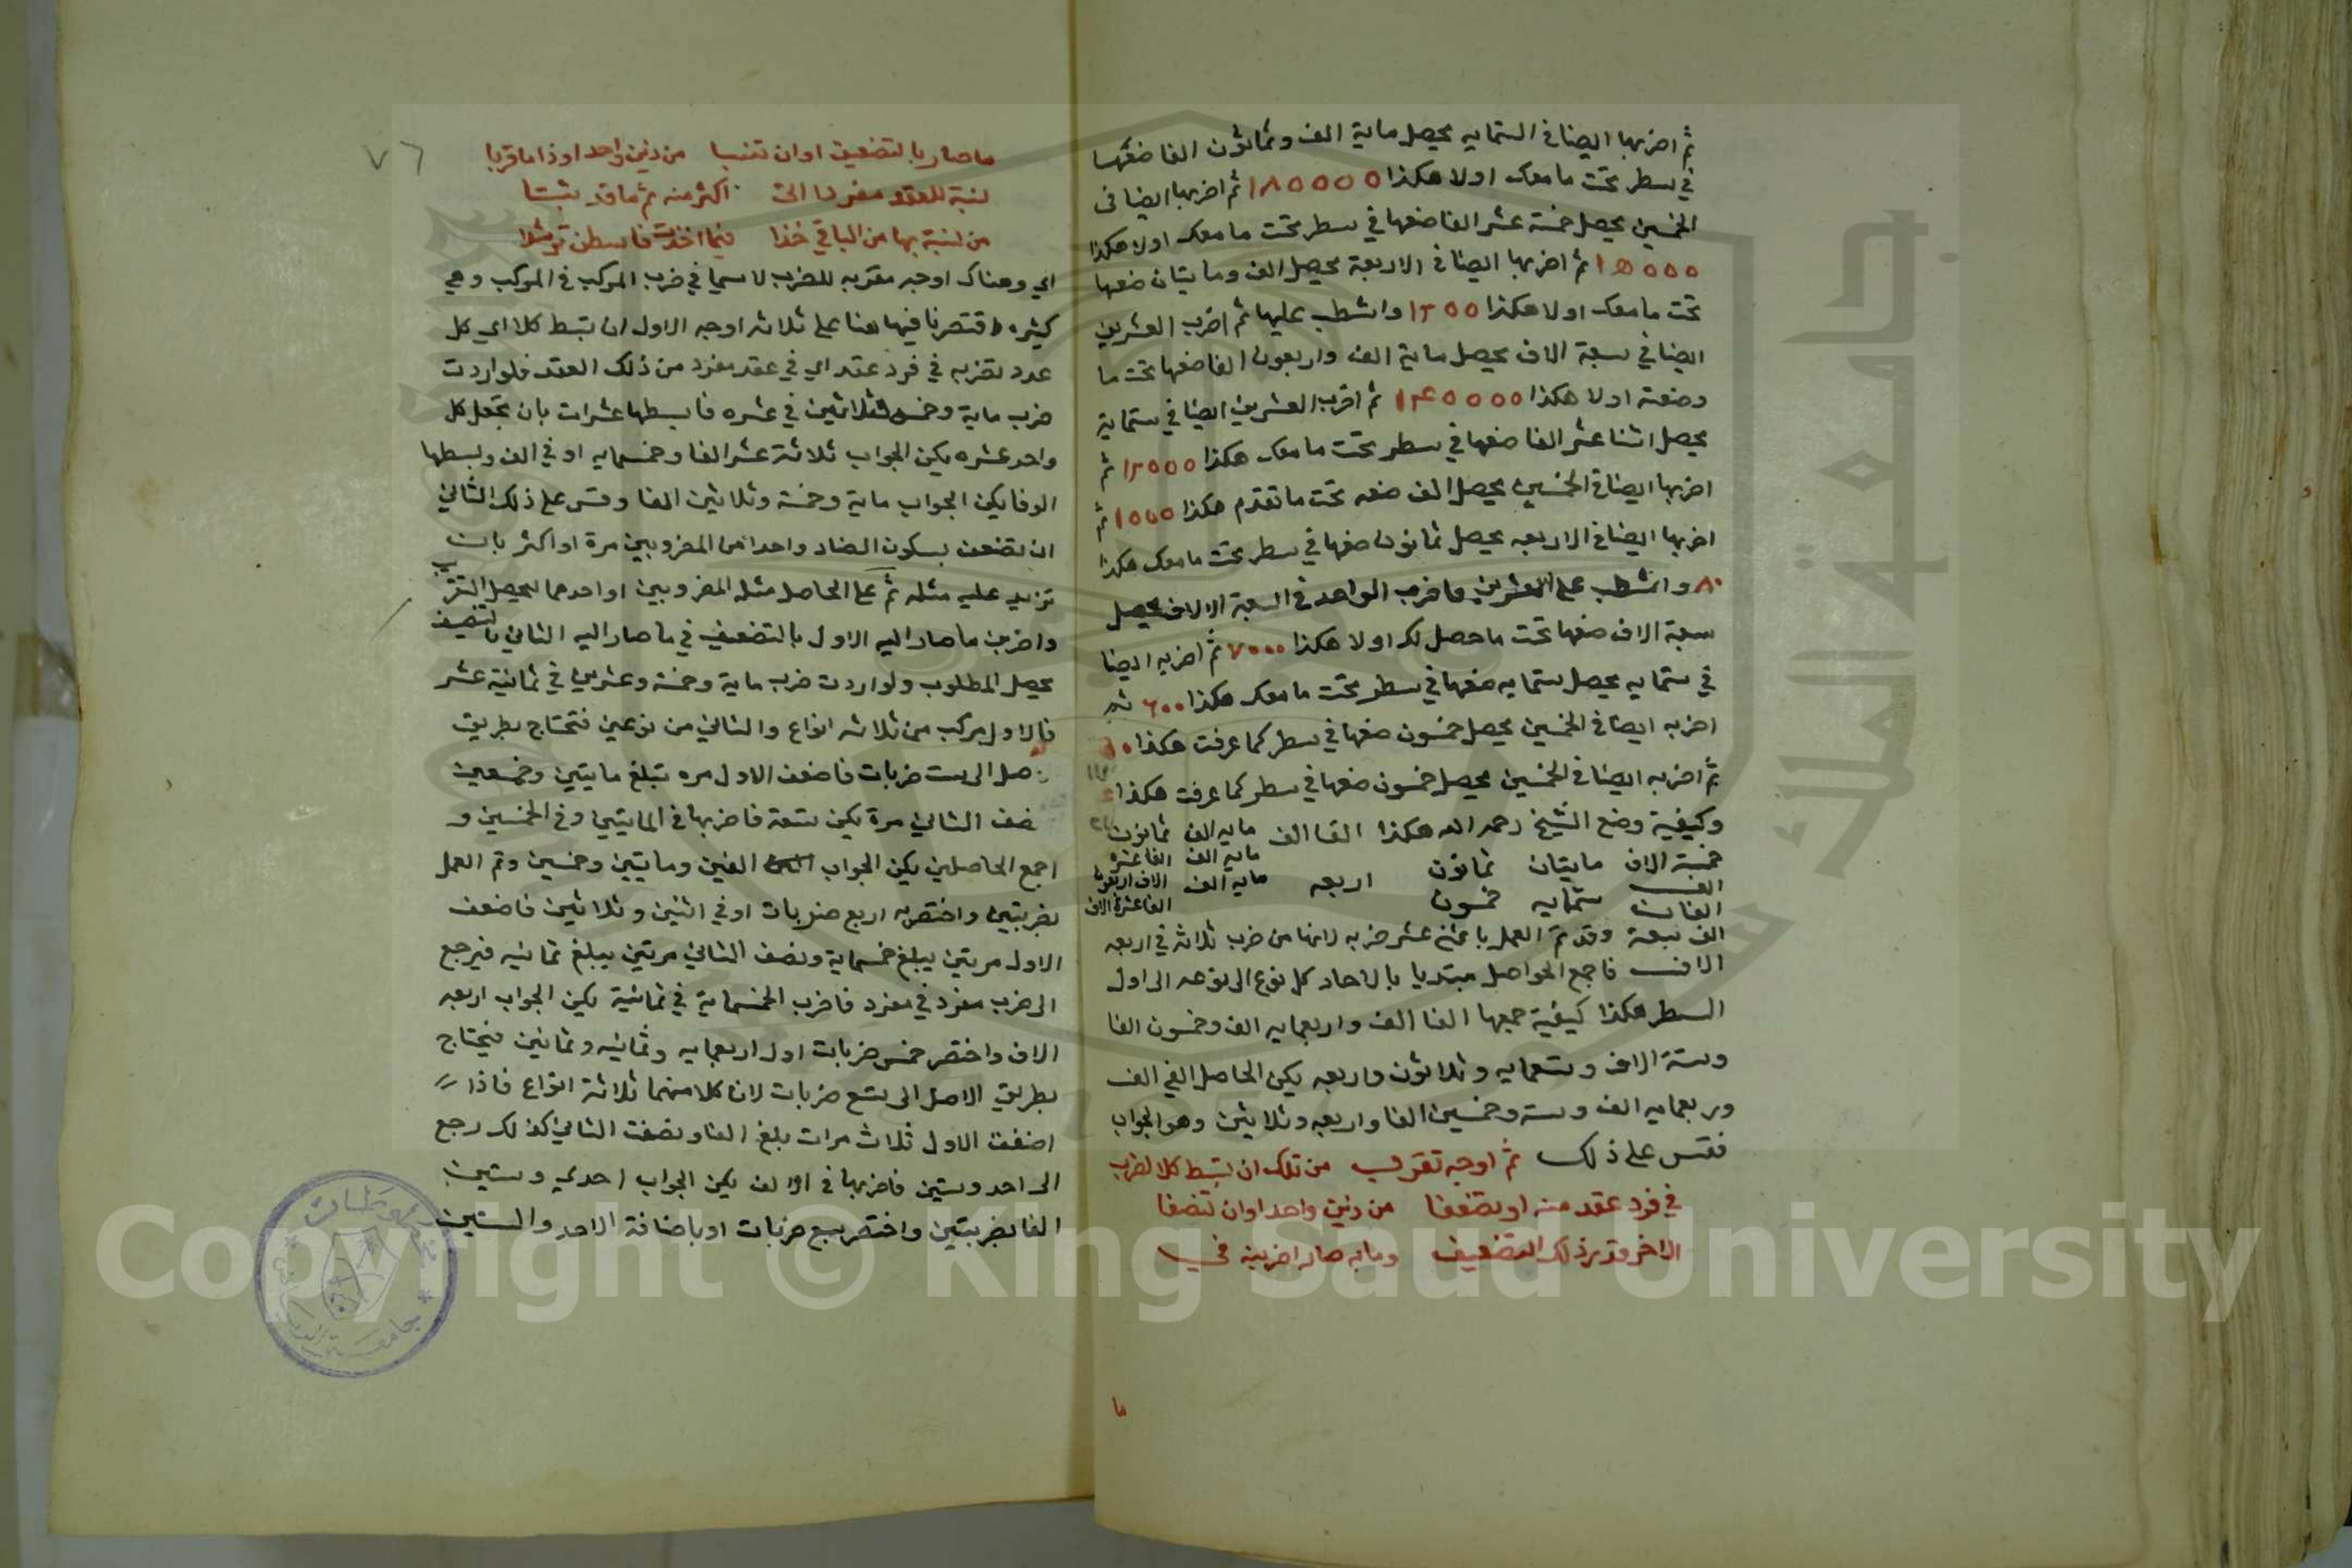 ثم اضربها ايضا في الستمايه يحصل ماية الف وثمانون الفا ضعها
في سطر تحت ما معك اولا هكذا ١٨٥٥٥٥ ثم اضربها ايضا في
الخمسين يحصل خمسة عشر الفا ضعها في سطر تحت ما معك اولا هكذا
١٥٥٥٥ ثم اضربها ايضا في الاربعة يحصل الف ومايتان ضعها
تحت ما معك اولا هكذا ١٢٥٥ واشطب عليها ثم اضرب العشرين
ايضا في سبعة الاف يحصل ماية الف واربعون الفا ضعها تحت ما
وضعته اولا هكذا ١٤٥٥٥٥ ثم اضرب العشرين ايضا في ستماية
يحصل اثنا عشر الفا ضعها في سطر تحت ما معك هكذا ١٢٥٥٥ ثم
اضربها ايضا في الخمسين يحصل الف ضعه تحت ما تقدم هكذا ١٥٥٥ ثم
اضربها ايضا في الاربعه يحصل ثمانون ضعها في سطر تحت ما معك هكذا
٨٠ واشطب على العشرين فاضرب الواحد في السبعة الالاف يحصل
سبعة الاف ضعها تحت ما حصل لك اولا هكذا ٧٠٠٠ ثم اضربه ايضا
في ستمايه يحصل ستمايه ضعها في سطر تحت ما معك هكذا ٦٠٠ ثم
اضربه ايضا في الخمسين يحصل خمسون ضعها في سطر كما عرفت هكذا
ثم اضربه ايضا في الخمسين يحصل خمسون ضعها في سطر كما عرفت هكذا
وكيفية وضع الشيخ رحمه الله هكذا الفا الف مايه الف ثمانون
خمسة الاف مايتان ثمانون اربعه مايه الف
الف ستمايه خمسون مايه الف
الف سبعة وقد تم العمل باثني عشر ضربه لانها من ضرب ثلاثه في اربعه
الاف فاجمع الحواصل مبتديا بالاحاد كل نوع الى نوعه الى اول
السطر هكذا كيفية جمعها الفا الف واربعمايه الف وخمسون الفا
وستة الاف وتسعمايه وثلاثون واربعه يكن الحاصل الفي الف
واربعمايه الف وسته وخمسين الفا واربعه وثلاثين وهو الجواب
فقس على ذلك ثم اوجه تقرب من تلك ان تبسط كلا لضرب
في فرد عقد منه او تضعفا من ذين واحد او ان تنصفا
الاخر قدر ذلك التضعيف وما به صار اضربنه في
ما
٧٦
ما صار بالتضعيف او ان تنسبا من ذين واحد او ذا ما قربا
لنسبة للعقد مفردا اتى اكثر منه ثم ما قد ثبتا
من نسبة بها من الباقي خذا فيما اخذت فابسطن
اي وهناك اوجه مقربه للضرب لا سيما في ضرب المركب في المركب وهي
كثيره اقتصرنا فيها هنا على ثلاثه اوجه الاول ان تبسط كلا اي كل
عدد تضربه في فرد عقد اي في عقد مفرد من ذلك العقد فلو اردت
ضرب ماية وخمس وثلاثين في عشره فابسطها عشرات بان تجعل كل
واحد عشره يكن الجواب ثلاثة عشر الفا وخمسمايه او في الف وبسطها
الوفا يكن الجواب ماية وخمسة وثلاثين الفا وقس على ذلك الثاني
ان تضعف بسكون الضاد واحدا من المضروبين مرة او اكثر بان
تزيد عليه مثله ثم على الحاصل مثله المضروبين او احدهما ليحصل التقريب
واضرب ما صار اليه الاول بالتضعيف في ما صار اليه الثاني بالتنصيف
يحصل المطلوب ولو اردت ضرب ماية وخمسة وعشرين في ثمانية عشر
فالاول مركب من ثلاثه انواع والثاني من نوعين فتحتاج بطريق
صل الى ست ضربات فاضعف الاول مره تبلغ مايتين وخمسين
نصف الثاني مرة يكن تسعة فاضربها في المايتين وفي الخمسين و
اجمع الحاصلين يكن الجواب الفين ومايتين وخمسين وتم العمل
بضربتين واختصر به اربع ضربات او في اثنين وثلاثين فاضعف
الاول مرتين يبلغ خمسماية ونصف الثاني مرتين يبلغ ثمانيه فيرجع
الى ضرب مفرد في مفرد فاضرب الخمسماية في ثمانية يكن الجواب اربعه
الاف واختصر خمس ضربات اول اربعمايه وثمانيه وثمانين فيحتاج
بطريق الاصل الى تسع ضربات لان كلا منهما ثلاثة انواع فاذا
اضعفت الاول ثلاث مرات بلغ الفا ونصفت الثاني كذلك رجع
الى احد وستين فاضربها في الالف يكن الجواب احدي وستين
الفا بضربتين واختصر سبع ضربات او باضافة الاحد والستين
جامعة الملك سعود
Copyright © King Saud University